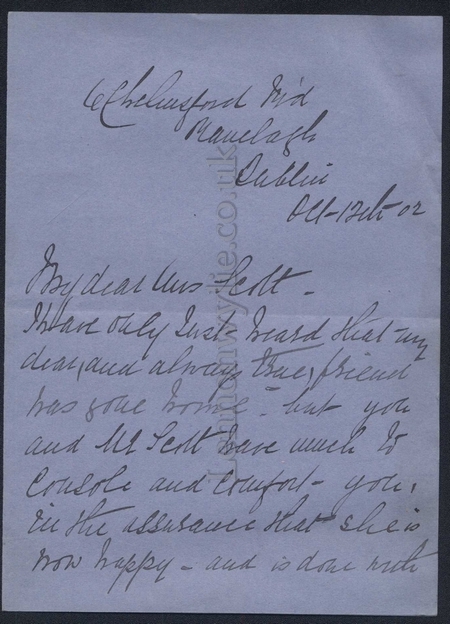 6 Chelmsford Rd
Ranelagh
Dublin
Oct 12th 02
My dear Mrs Scott -
I have only just heard that my
dear, and always true, friend
has gone home - but you
and Mr Scott have much to
console and comfort - you,
in the assurance that she is
now happy - and is done with